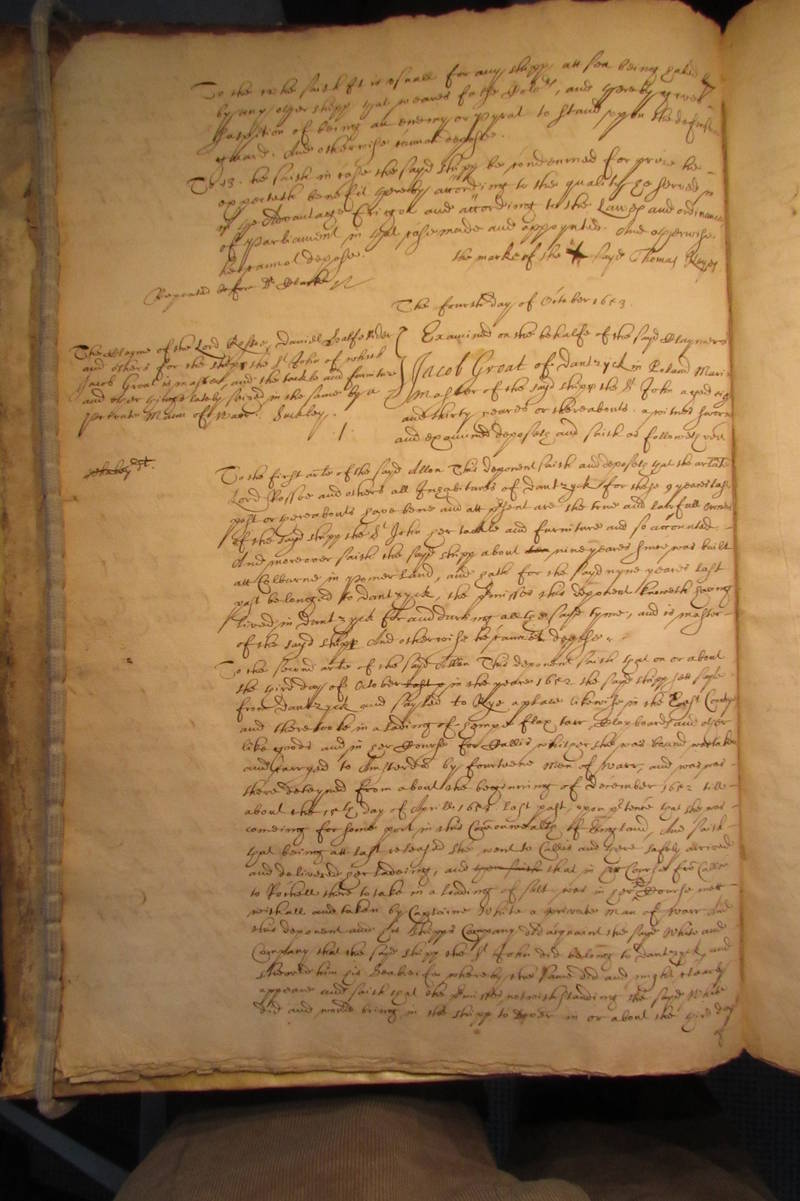 To the 12. he saith It is usuall for any shipp att sea being
by any other shipp that weares false Colours, and thereby gives
suspition of being an enemy or pyrat to stand upon the defensive
guard. And otherwise cannot depose.
To the 13. he saith in case the sayd shipp be condemned for prize he
expecteth benefit thereby according to the quality he served in
in the Advantage Frigot and according to the Lawes and ordinances
of Parliament in that case made and appoynted. And otherwise
hee cannot depose.
the marke of the sayd Thomas
Repeated before Dr Clarke
The fourth day of October 1653.
The Clayme of the Lord Rosse, Daniel
and others for the shipp the St John of which
Jacob Groat is master, and the tackle and furniture
and over things lately seized in the same by a
private Mann of Warr. Suckley.
Examined on the behalfe of the sayd Claymers
Jacob Groat of Dantzyck in Poland Mariner
master of the sayd shipp the St John aged
and thirty yeares or thereabouts a witnes sworne
and examined deposeth and saith as followeth vizt
To the first article of the sayd Allon This deponent saith and deposeth that the arlate
Lord Rosse and others all Inhabitants of Dantzyck for these 9 yeares last
past or thereabouts have bene and att present are the true and lawfull owners
of the sayd shipp the St John her tackle and furniture and so accounted
And moreover saith the sayd shipp about nine yeares since was built
att Colburne in Pomerland, and hath for the sayd nyne yeares last
past belonged to Dantzyck, the premisses this deponent knoweth having
lived in Dantzyck for and during all the sayd tyme, and is master
of the sayd shipp And otherwise he cannot depose.
To the second article of the sayd Allon This deponent saith that on or about
the third day of October in the yeare 1652 the sayd shipp sett sayle
from Dantzyck and sayled to Rye a place likewise in the East Countrye
and there tooke in a lading of hempe flax tarr Clapboards and other
like goods and in her Course for Callis whither she was bound was taken
and carryed to Amsterdam by fourteene Men of Warr, and was
there deteyned from about the beginning of December 1652 till
about the 15th day of Aprill 1653 last past, upon pretence that she was
comeing for some port in this Commonwealth of England, And saith
that being att last released she went to Callis and there safely arrived
and delivered her ladeing, and that in her Course from Callis
to Rochell there to take in a lading of salt was in her Course mett
withall and taken by Captaine White a private Man of Warr And
this deponent and his shipps Company did acquaint the sayd White and
Company that the sayd shipp the St John did belong to Dantzyck, and
shewed him his Seabriefe whereby the same did and might clearly
appeare and saith that the premisses notwithstanding the sayd White
did and would bring in the shipp to Dover in or about the third day
of